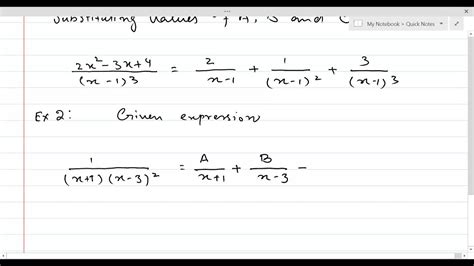 My Notebook > Quick Notes
Substituting values of A, B and C
\frac{2x^2-3x+4}{(x-1)^3} = \frac{2}{x-1} + \frac{1}{(x-1)^2} + \frac{3}{(x-1)^3}
Ex 2: Given expression
\frac{1}{(x+1)(x-3)^2} = \frac{A}{x+1} + \frac{B}{x-3} -